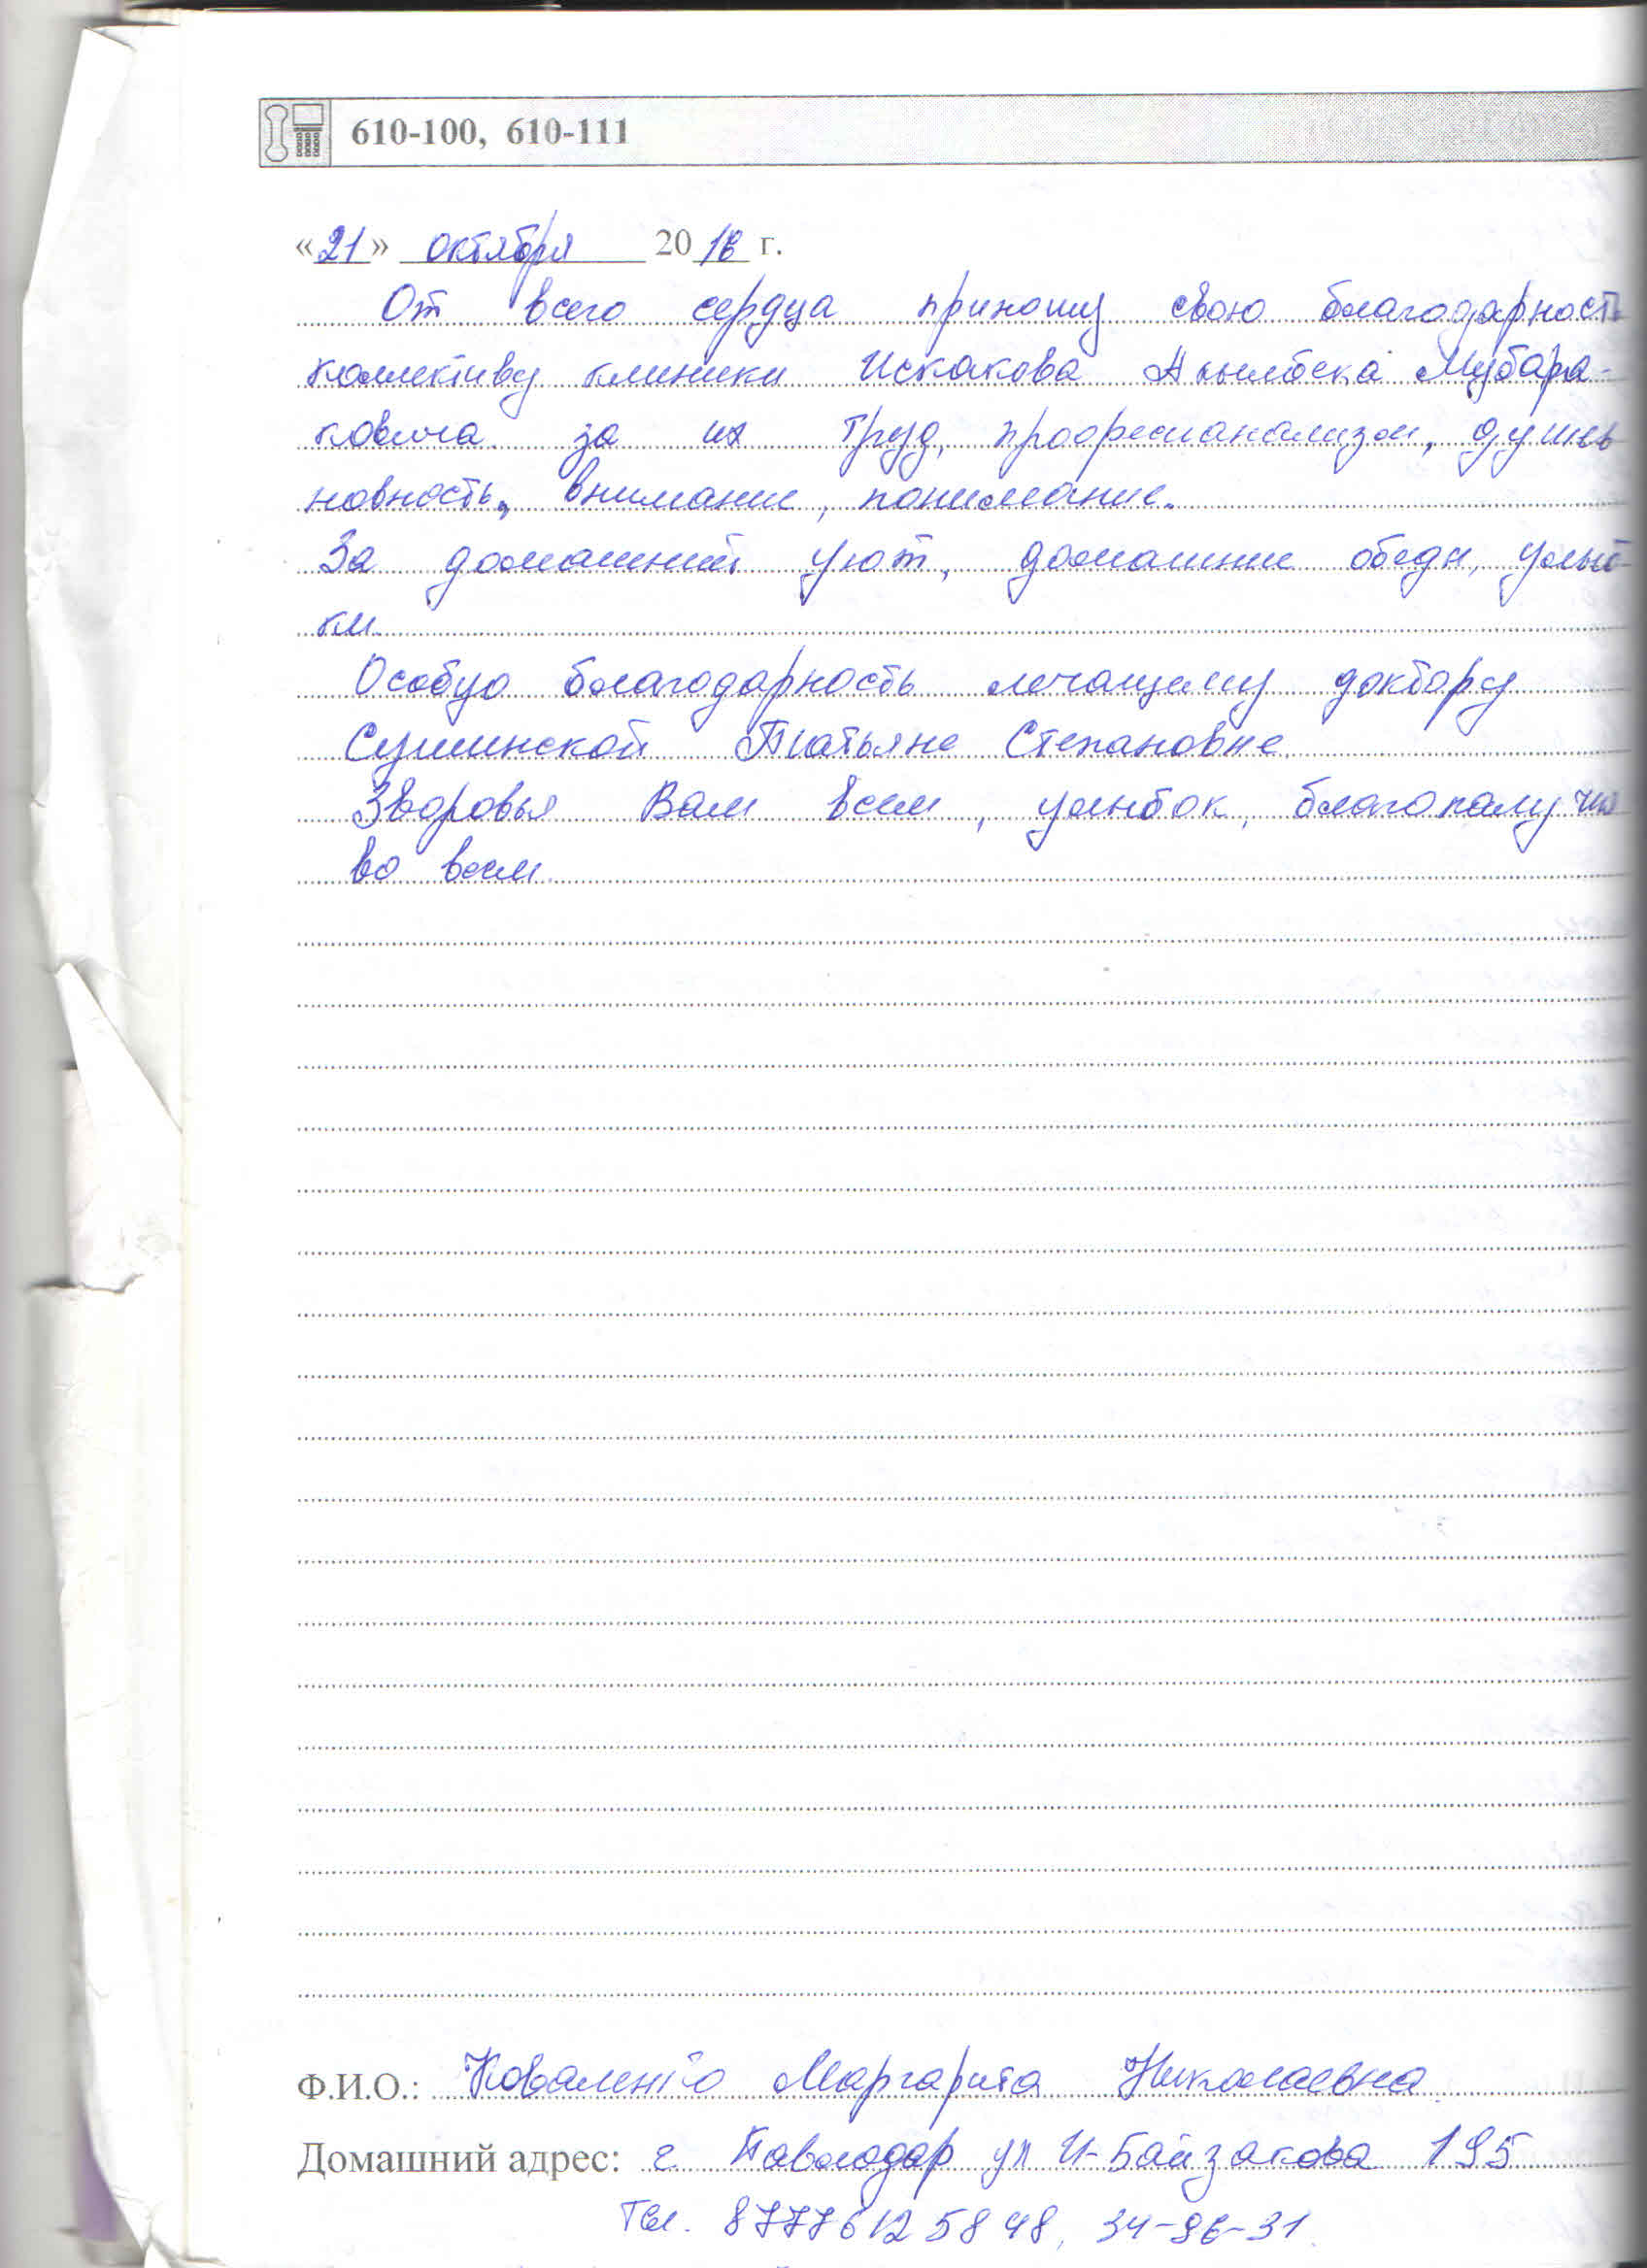 610-100, 610-111
«21» октября 2016 г.
От всего сердца приношу свою благодарность
коллективу клиники Искакова Акылбека Мубара-
ковича за их труд, профессианализм, душев
новность, внимание, понимание.
За домашний уют, домашние обеды, улыб-
ки.
Особую благодарность лечащему доктору
Татьяне Степановне
Здоровья Вам всем, улыбок, благополучия
во всем.
Ф.И.О.: Коваленко Маргарита Николаевна
Домашний адрес: г. Павлодар ул И-Байзакова 195
Тел. 87776125848, 34-96-31